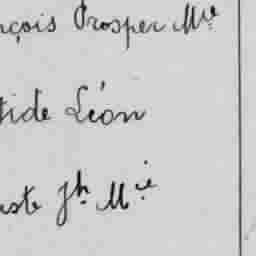 nçois Prosper Mie
tide Léon
uste Jh Mie